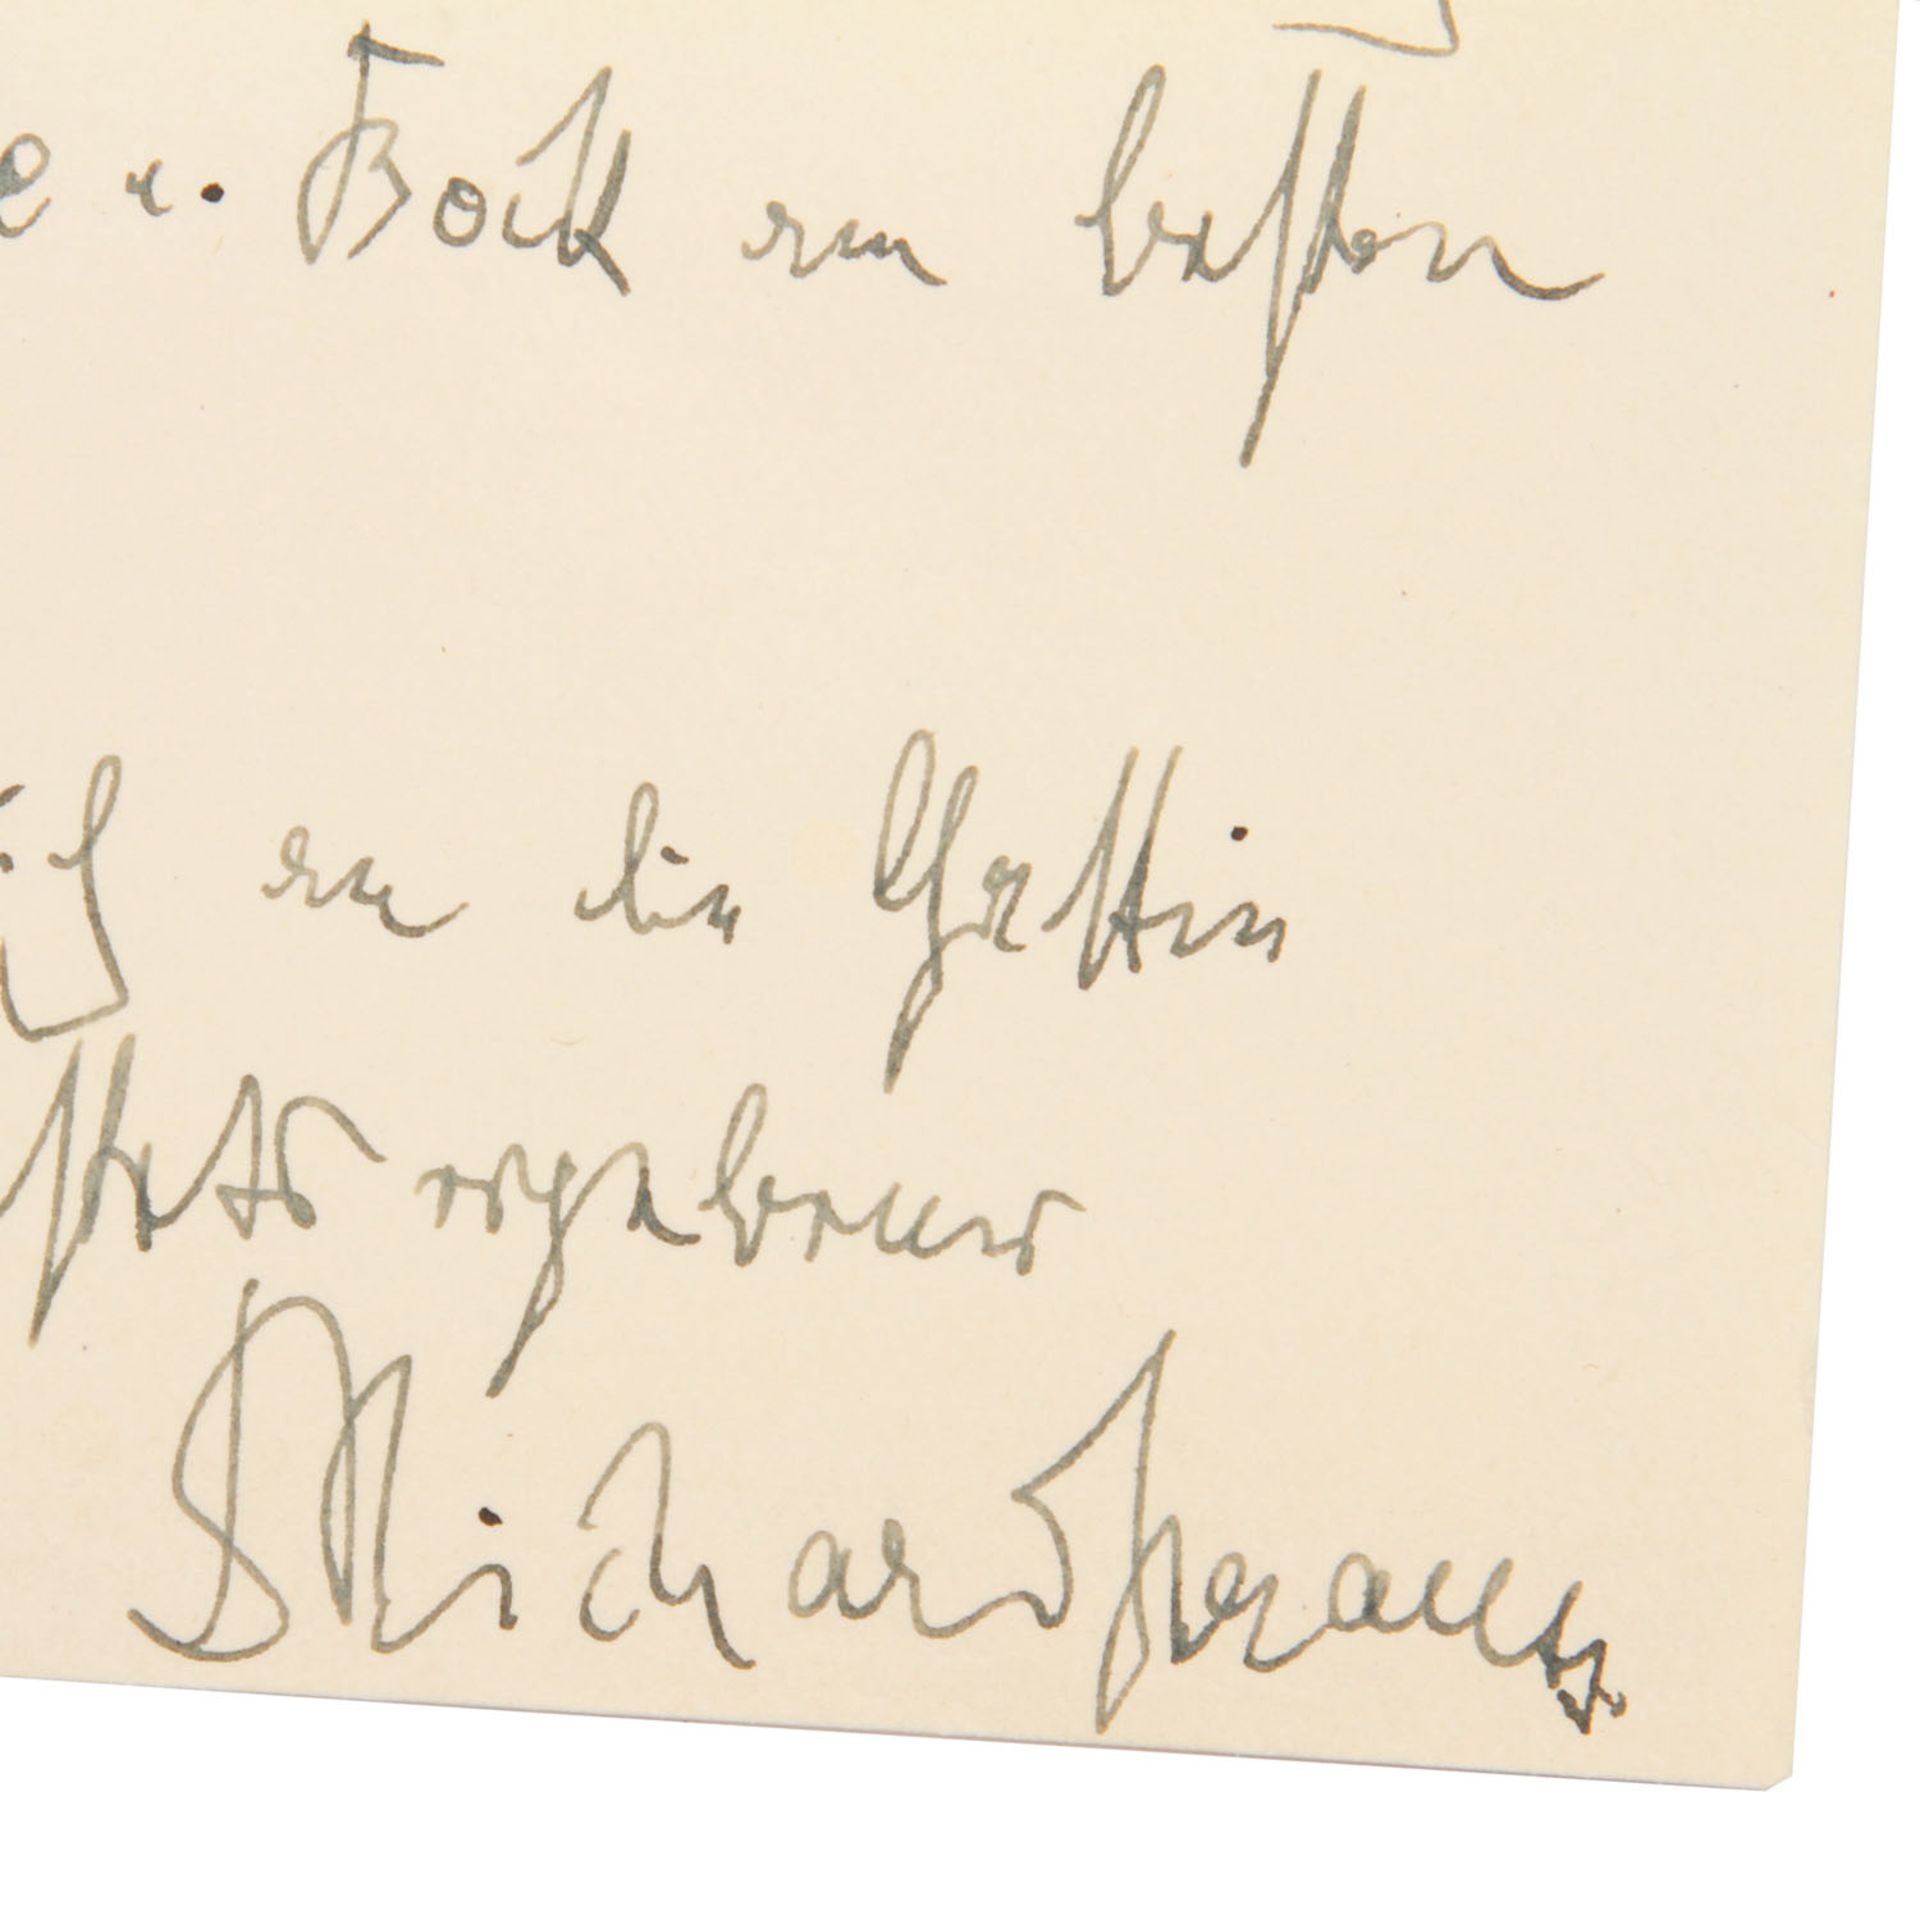 e u. Bock am besten
an die Gattin
stets ergebener
Dr Richard Strauss